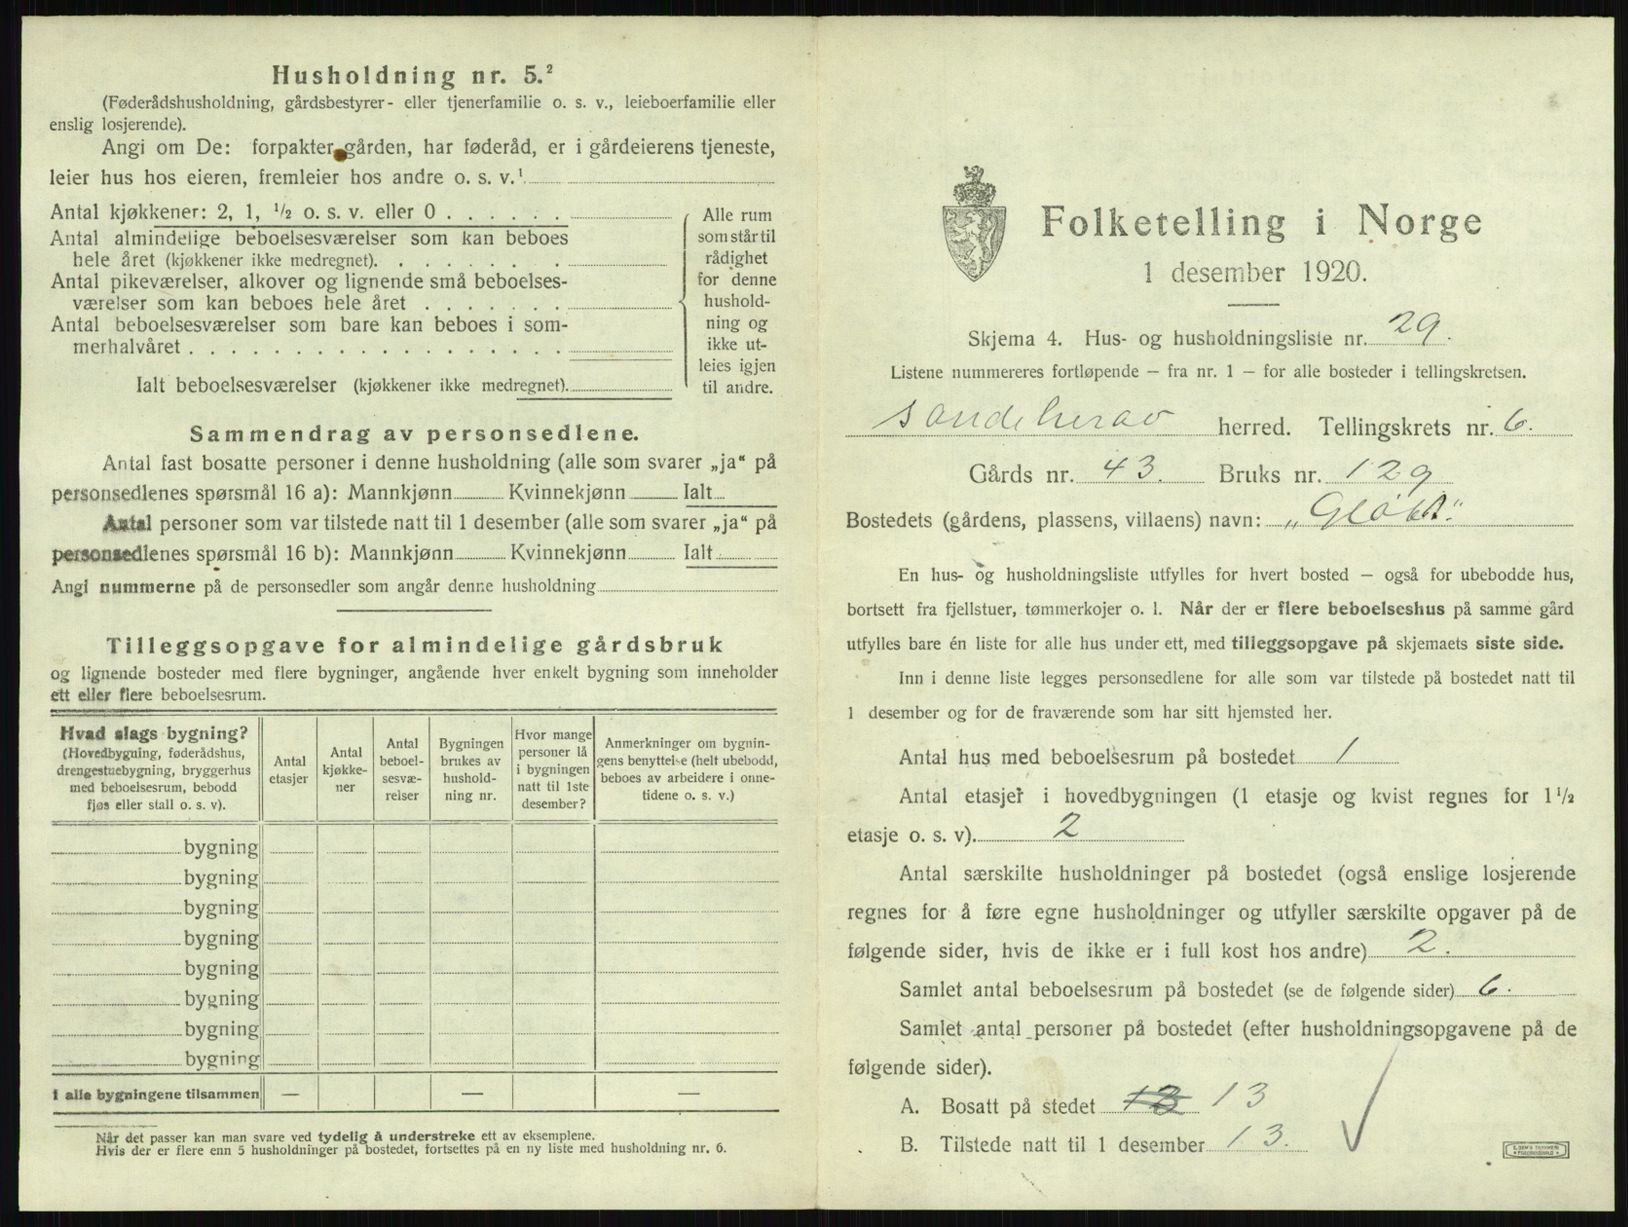 Husholdning nr. 5.²
(Føderådshusholdning, gårdsbestyrer- eller tjenerfamilie o. s. v., leieboerfamilie eller
enslig losjerende).
Angi om De: forpakter gården, har føderåd, er i gårdeierens tjeneste,
leier hus hos eieren, fremleier hos andre o. s. v.¹
Antal kjøkkener: 2, 1, ½ o. s. v. eller 0 . . . . . .
Antal almindelige beboelsesværelser som kan beboes
hele året (kjøkkener ikke medregnet). . . . . . . .
Antal pikeværelser, alkover og lignende små beboelses-
værelser som kan beboes hele året . . . . . . .
Antal beboelsesværelser som bare kan beboes i som-
merhalvåret . . . . . . . . . . . . . . . . . .
Ialt beboelsesværelser (kjøkkener ikke medregnet).
Alle rum
som står til
rådighet
for denne
hushold-
ning og
ikke ut-
leies igjen
til andre.
Sammendrag av personsedlene.
Antal fast bosatte personer i denne husholdning (alle som svarer „ja“ på
personsedlenes spørsmål 16 a): Mannkjønn Kvinnekjønn Ialt
Antal personer som var tilstede natt til 1 desember (alle som svarer „ja“ på
personsedlenes spørsmål 16 b): Mannkjønn Kvinnekjønn Ialt
Angi nummerne på de personsedler som angår denne husholdning
Tilleggsopgave for almindelige gårdsbruk
og lignende bosteder med flere bygninger, angående hver enkelt bygning som inneholder
ett eller flere beboelsesrum.
Hvad slags bygning?
(Hovedbygning, føderådshus,
drengestuebygning, bryggerhus
med beboelsesrum, bebodd
fjøs eller stall o. s. v).
Antal
etasjer
Antal
kjøkke-
ner
Antal
beboel-
sesvæ-
relser
Bygningen
brukes av
hushold-
ning nr.
Hvor mange
personer lå
i bygningen
natt til 1ste
desember?
Anmerkninger om bygnin-
gens benyttelse (helt ubebodd,
beboes av arbeidere i onne-
tidene o. s. v.)
bygning
bygning
bygning
bygning
bygning
bygning
bygning
bygning
I alle bygningene tilsammen — — —
Når det passer kan man svare ved tydelig å understreke ett av eksemplene.
Hvis der er flere enn 5 husholdninger på bostedet, fortsettes på en ny liste med husholdning nr. 6.
Folketelling i Norge
1 desember 1920.
Skjema 4. Hus- og husholdningsliste nr. 29.
Listene nummereres fortløpende — fra nr. 1 — for alle bosteder i tellingskretsen.
Sandeherav herred. Tellingskrets nr. 6.
Gårds nr. 43. Bruks nr. 129
Bostedets (gårdens, plassens, villaens) navn:
En hus- og husholdningsliste utfylles for hvert bosted — også for ubebodde hus,
bortsett fra fjellstuer, tømmerkojer o. l. Når der er flere beboelseshus på samme gård
utfylles bare én liste for alle hus under ett, med tilleggsopgave på skjemaets siste side.
Inn i denne liste legges personsedlene for alle som var tilstede på bostedet natt til
1 desember og for de fraværende som har sitt hjemsted her.
Antal hus med beboelsesrum på bostedet 1
Antal etasjer i hovedbygningen (1 etasje og kvist regnes for 1½
etasje o. s. v). 2
Antal særskilte husholdninger på bostedet (også enslige losjerende
regnes for å føre egne husholdninger og utfyller særskilte opgaver på de
følgende sider, hvis de ikke er i full kost hos andre) 2.
Samlet antal beboelsesrum på bostedet (se de følgende sider) 6.
Samlet antal personer på bostedet (efter husholdningsopgavene på de
følgende sider).
A. Bosatt på stedet 13
B. Tilstede natt til 1 desember 13.